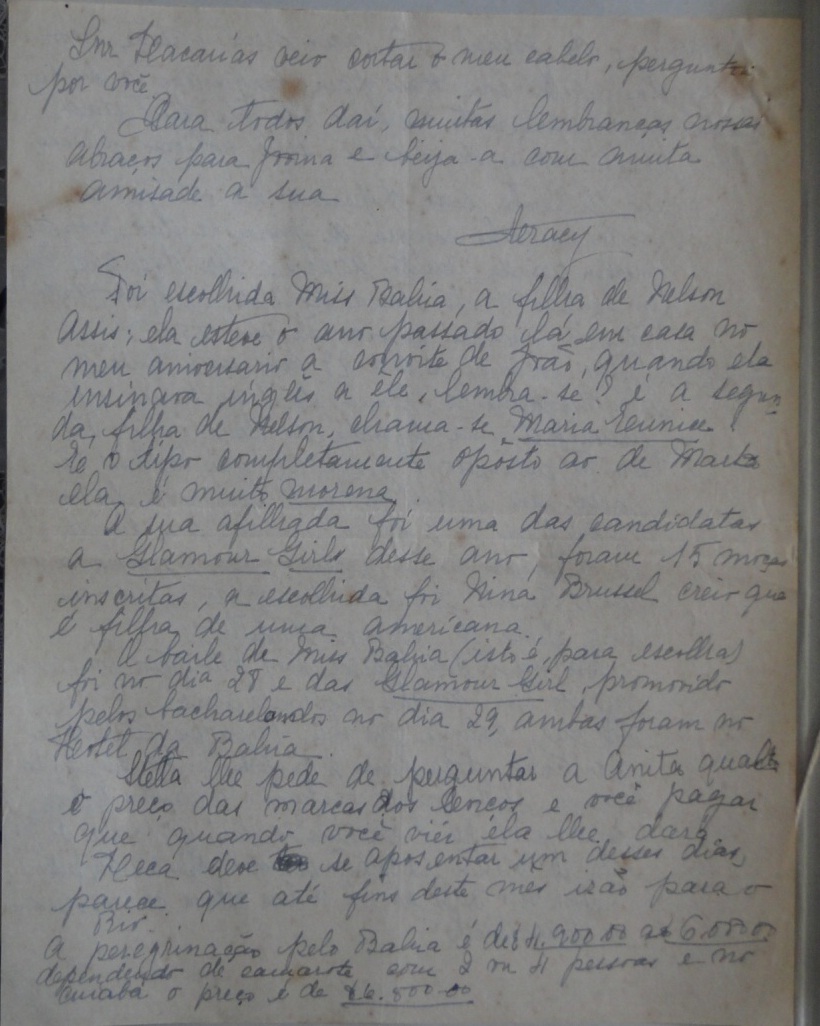 Snr Zacarias veio cortar o meu cabelo, perguntou
por você
Para todos daí, muitas lembranças nossas
abraços para Joana e beija-a com muita
amisade a sua
Aeracy
Foi escolhida Miss Bahia, a filha de Nelson
Assis; ela esteve o ano passado lá em casa no
meu aniversario a convite de João, quando ela
insinava inglês a êle, lembra-se? é a segun
da filha de Nelson, chama-se Maria Eunice
E o tipo completamente opôsto ao de Marta
ela é muito morena
A sua afilhada foi uma das candidatas
a Glamour Girls desse ano, foram 15 moças
inscritas, a escolhida foi Nina Brussel creio que
é filha de uma americana.
O baile de Miss Bahia (isto é, para escolha)
foi no dia 28 e das Glamour Girl, promovido
pelos bacharelandos no dia 29, ambas foram no
Hotel da Bahia
Stella lhe pede de perguntar a Anita qual
o preço das marcas dos lenços e você pagar
que quando você viér éla lhe dará.
Zeca deve se aposentar um desses dias,
parece que até fins deste mês irão para o
Rio.
A peregrinação pelo Bahia é de 4.900.00 a 6.000.00
dependendo de camarote com 2 ou 4 pessoas e no
Cuiabá o preço é de 6.800.00